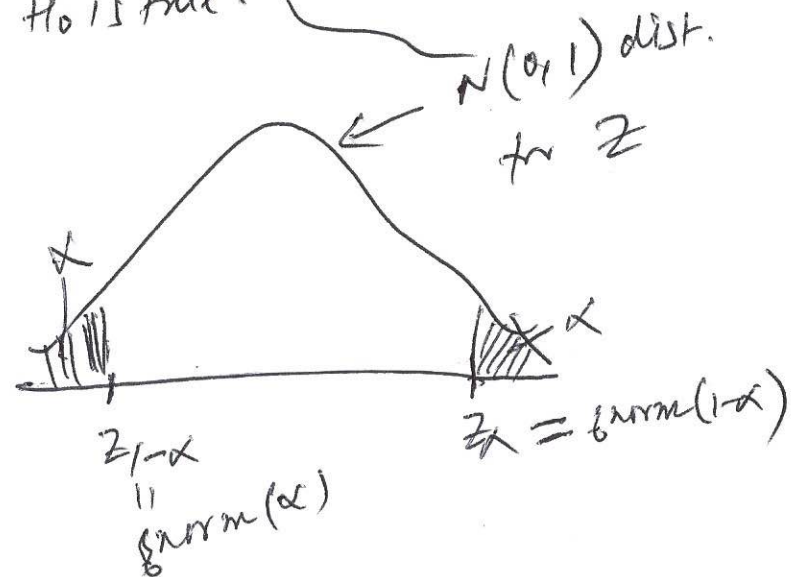 H₀ is true.
N(0,1) dist.
for Z
α
α
Z₁₋α
Zα = qnorm(1-α)
||
qnorm(α)